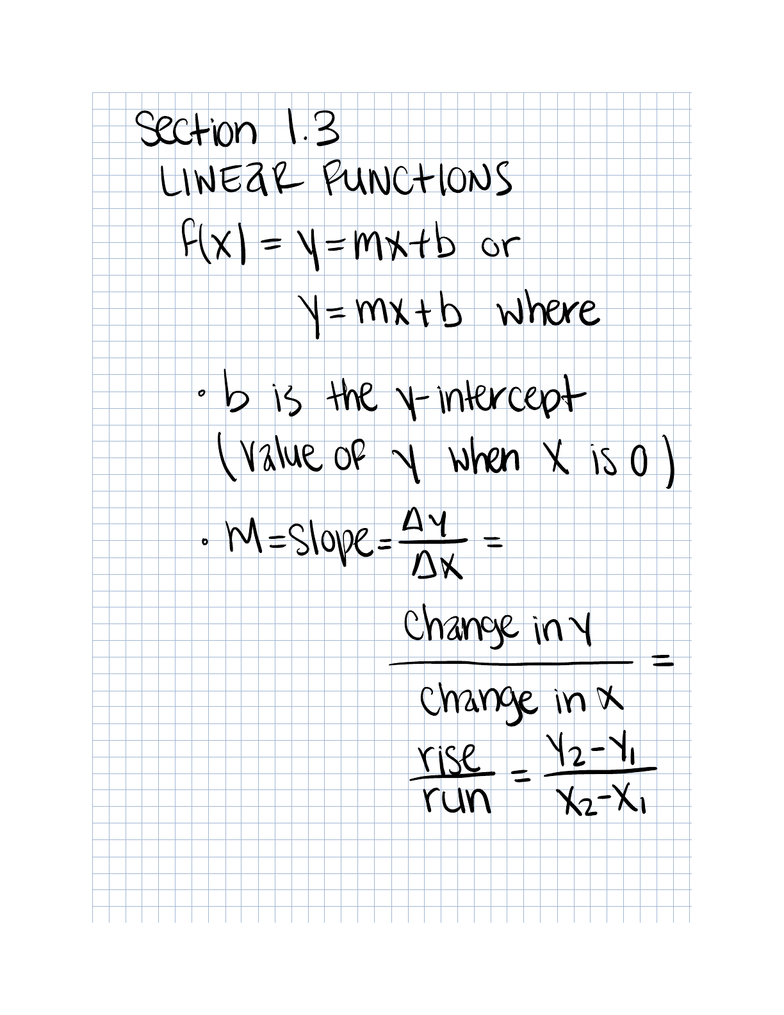 Section 1.3
LINEAR FUNCTIONS
f(x) = y = mx+b or
y = mx+b where
• b is the y-intercept
(value of y when x is 0)
• M = Slope = Δy/Δx =
change in y / change in x =
rise/run = (y₂-y₁)/(x₂-x₁)